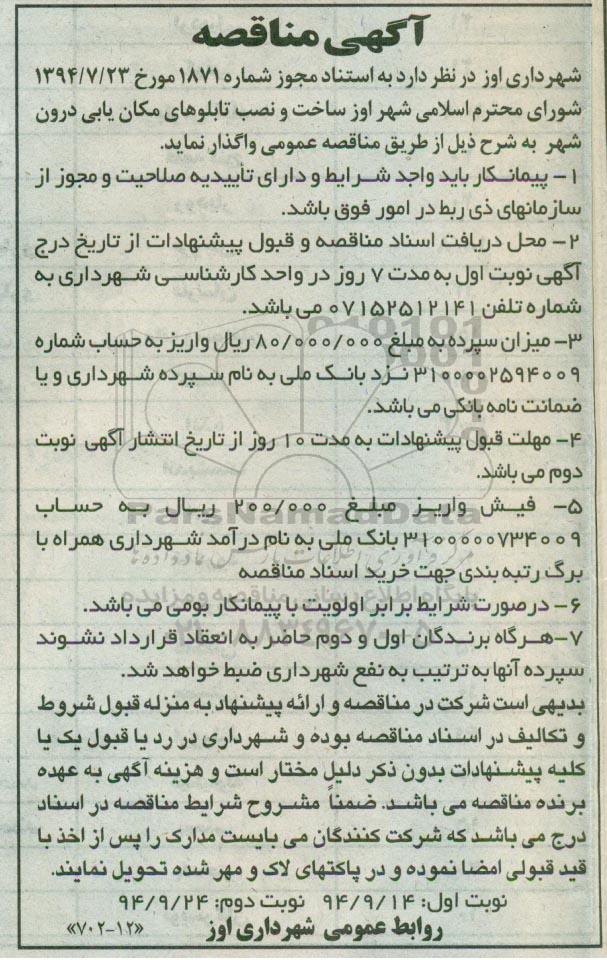 آگهی مناقصه
شهرداری اوز در نظر دارد به استناد مجوز شماره ۱۸۷۱ مورخ ۱۳۹۴/۷/۲۳
شورای محترم اسلامی شهر اوز ساخت و نصب تابلوهای مکان یابی درون
شهر به شرح ذیل از طریق مناقصه عمومی واگذار نماید.
۱- پیمانکار باید واجد شرایط و دارای تاییدیه صلاحیت و مجوز از
سازمانهای ذی ربط در امور فوق باشد.
۲- محل دریافت اسناد مناقصه و قبول پیشنهادات از تاریخ درج
آگهی نوبت اول به مدت ۷ روز در واحد کارشناسی شهرداری به
شماره تلفن ۰۷۱۵۲۵۱۲۱۴۱ می باشد.
۳- میزان سپرده به مبلغ ۸۰/۰۰۰/۰۰۰ ریال واریز به حساب شماره
۳۱۰۰۰۰۲۵۹۴۰۰۹ نزد بانک ملی به نام سپرده شهرداری و یا
ضمانت نامه بانکی می باشد.
۴- مهلت قبول پیشنهادات به مدت ۱۰ روز از تاریخ انتشار آگهی نوبت
دوم می باشد.
۵- فیش واریز مبلغ ۲۰۰/۰۰۰ ریال به حساب
ParsNamadData
۳۱۰۰۰۰۰۷۳۴۰۰۹ بانک ملی به نام درآمد شهرداری همراه با
برگ رتبه بندی جهت خرید اسناد مناقصه
پایگاه اطلاع رسانی مناقصه و مزایده
۶- درصورت شرایط برابر اولویت با پیمانکار بومی می باشد.
۷- هرگاه برندگان اول و دوم حاضر به انعقاد قرارداد نشوند
سپرده آنها به ترتیب به نفع شهرداری ضبط خواهد شد.
بدیهی است شرکت در مناقصه و ارائه پیشنهاد به منزله قبول شروط
و تکالیف در اسناد مناقصه بوده و شهرداری در رد یا قبول یک یا
کلیه پیشنهادات بدون ذکر دلیل مختار است و هزینه آگهی به عهده
برنده مناقصه می باشد. ضمناً مشروح شرایط مناقصه در اسناد
درج می باشد که شرکت کنندگان می بایست مدارک را پس از اخذ با
قید قبولی امضا نموده و در پاکتهای لاک و مهر شده تحویل نمایند.
نوبت اول: ۹۴/۹/۱۴ نوبت دوم: ۹۴/۹/۲۴
روابط عمومی شهرداری اوز «۷۰۲-۱۲»